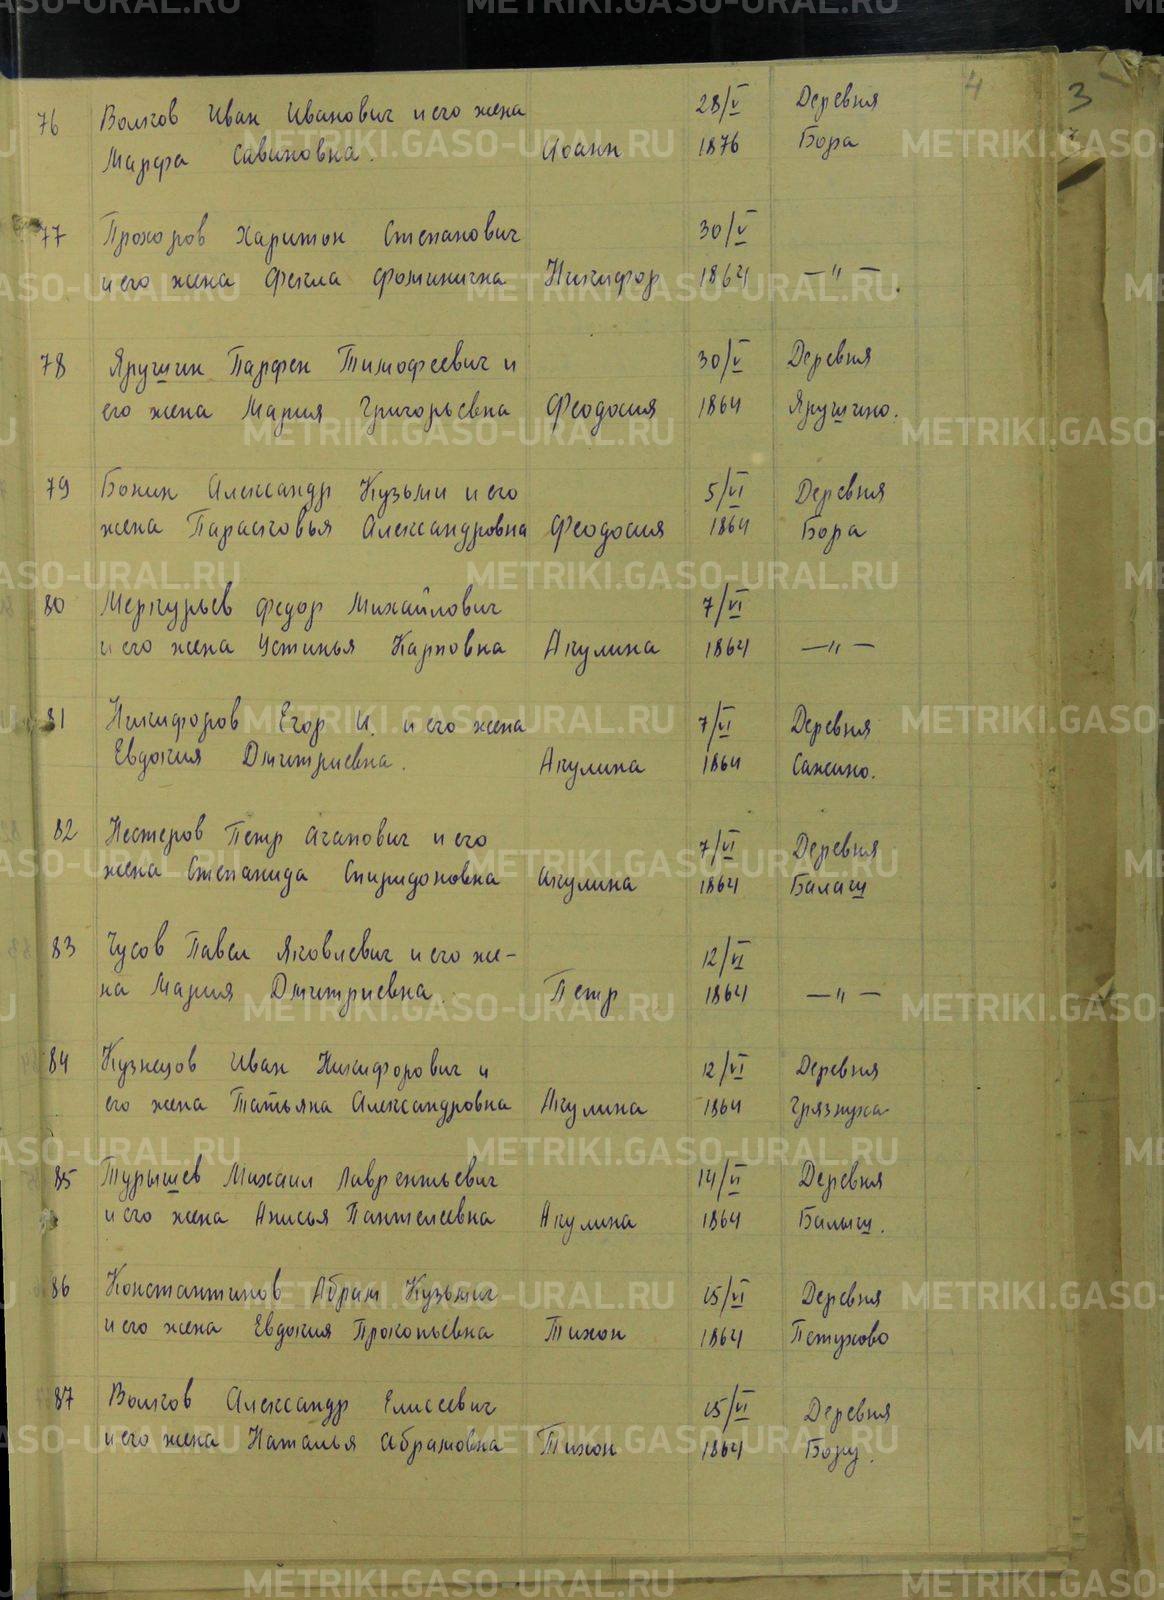 4
3
76 Волков Иван Иванович и его жена 28/V Деревня
Марфа Савиновна. Иоанн 1876 Бора
77 Прохоров Харитон Степанович 30/V
и его жена Фекла Фоминична Никифор 1864 —"—.
78 Ярушин Парфен Тимофеевич и 30/V Деревня
его жена Мария Григорьевна Феодосия 1864 Ярушино.
79 Бокин Александр Кузьми и его 5/VI Деревня
жена Парасковья Александровна Феодосия 1864 Бора
80 Меркурьев Федор Михайлович 7/VI
и его жена Устинья Карповна Акулина 1864 —"—
81 Никифоров Егор И. и его жена 7/VI Деревня
Евдокия Дмитриевна. Акулина 1864 Сажино.
82 Нестеров Петр Агапович и его 7/VI Деревня
жена Степанида Спиридоновна Акулина 1864
83 Чусов Павел Яковлевич и его же- 12/VI
на Мария Дмитриевна. Петр 1864 —"—
84 Кузнецов Иван Никифорович и 12/VI Деревня
его жена Татьяна Александровна Акулина 1864 Грязнуха
85 Турышев Михаил Лаврентьевич 14/VI Деревня
и его жена Анисья Пантелеевна Акулина 1864
86 Константинов Абрам Кузьмич 15/VI Деревня
и его жена Евдокия Прокопьевна Тихон 1864 Петухово
87 Волков Александр Елисеевич 15/VI Деревня
и его жена Наталья Абрамовна Тихон 1864 Бору.
METRIKI.GASO-URAL.RU